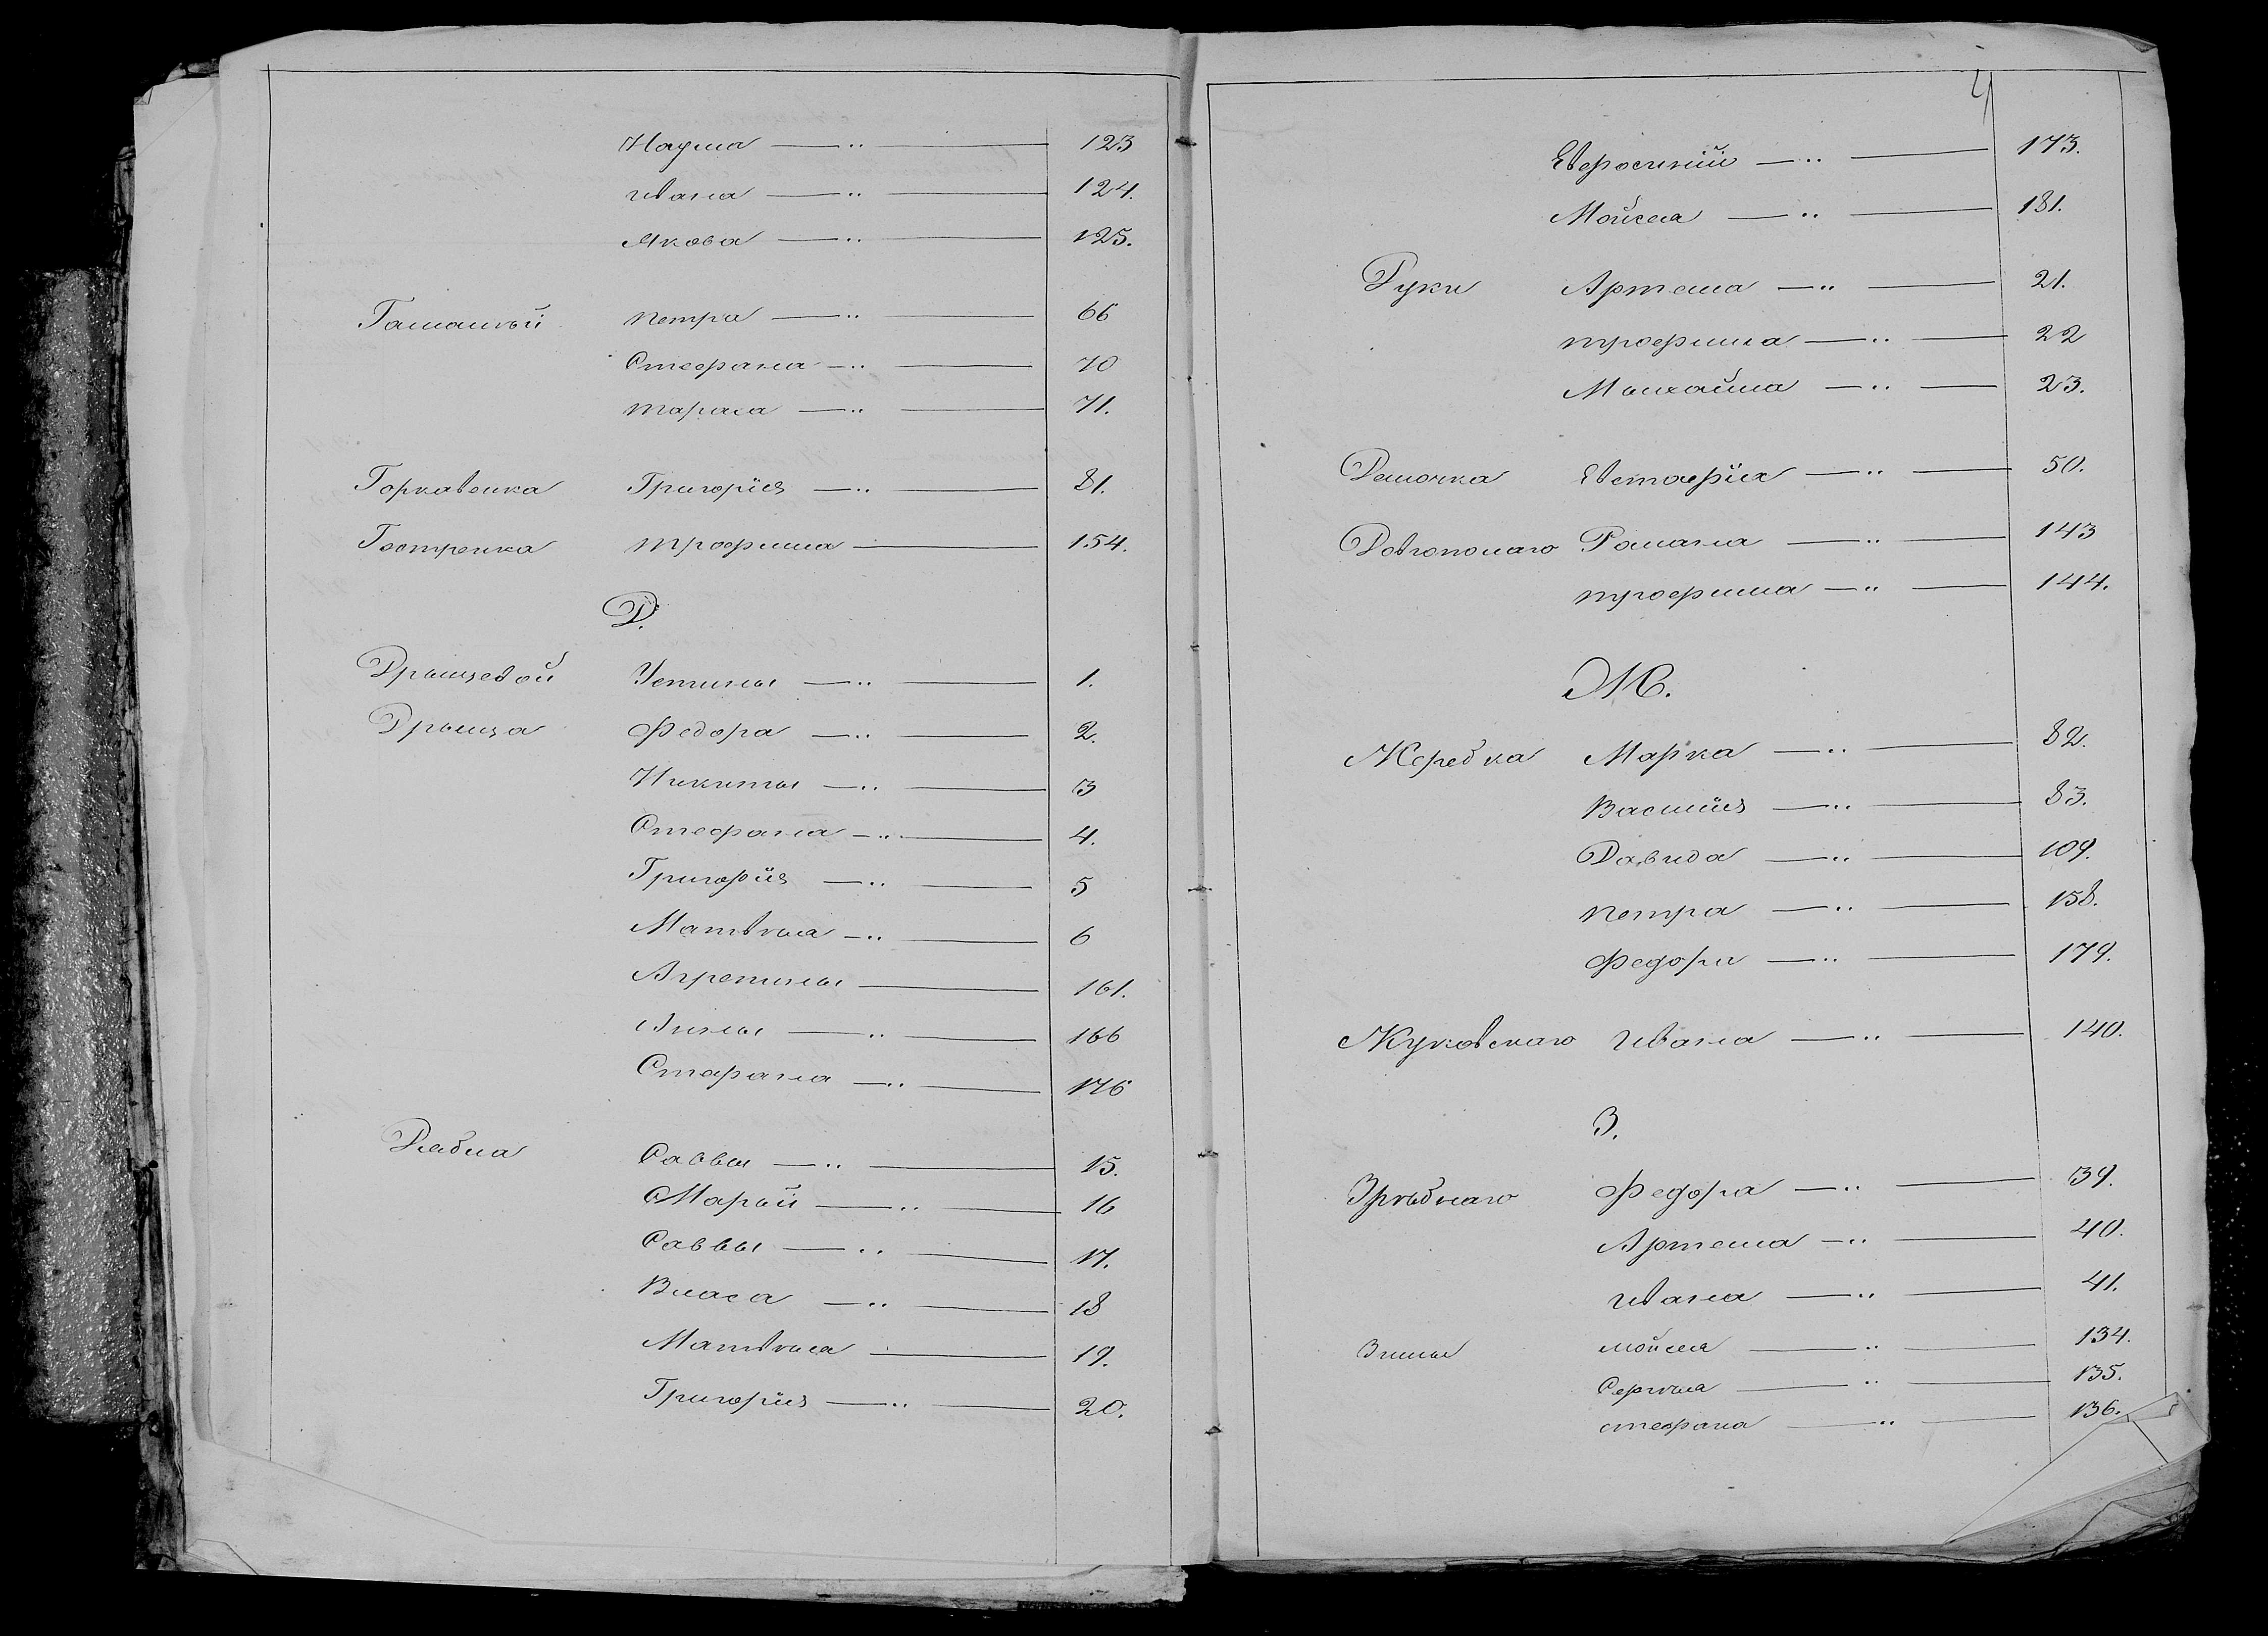 Наума —〃— 123
Ивана —〃— 124.
Якова —〃— 125.
Петра —〃— 66
Стефана —〃— 70
Тараса —〃— 71.
Горкавенка Григорія —〃— 81.
Гостренка Трофима — 154.
Д.
Дрыщевой Устины —〃— 1.
Дрыща Федора —〃— 2.
Никиты —〃— 3
Стефана —〃— 4.
Григорія —〃— 5
Матвѣя —〃— 6
Агрепины — 161.
Анны —〃— 166
Стефана —〃— 176
Саввы —〃— 15.
Марый —〃— 16
Саввы —〃— 17.
Власа —〃— 18
Матвѣя — 19.
Григорія —〃— 20.
4
Евфросиніи —〃— 173.
Мойсея —〃— 181.
Дуки Артема —〃— 21.
Трофима —〃— 22
Михайла —〃— 23.
Демочка Евстафія —〃— 50.
Довгополаго Романа —〃— 143
Трофима —〃— 144.
Ж.
Жеребка Марка —〃— 82.
Василія —〃— 83.
Давида —〃— 109.
Петра —〃— 158.
Федора —〃— 179.
Жуковскаго Ивана —〃— 140.
З.
Федора —〃— 39.
Артема —〃— 40.
Ивана —〃— 41.
Зимы Мойсея —〃— 134.
Сергѣя —〃— 135.
Стефана —〃— 136.